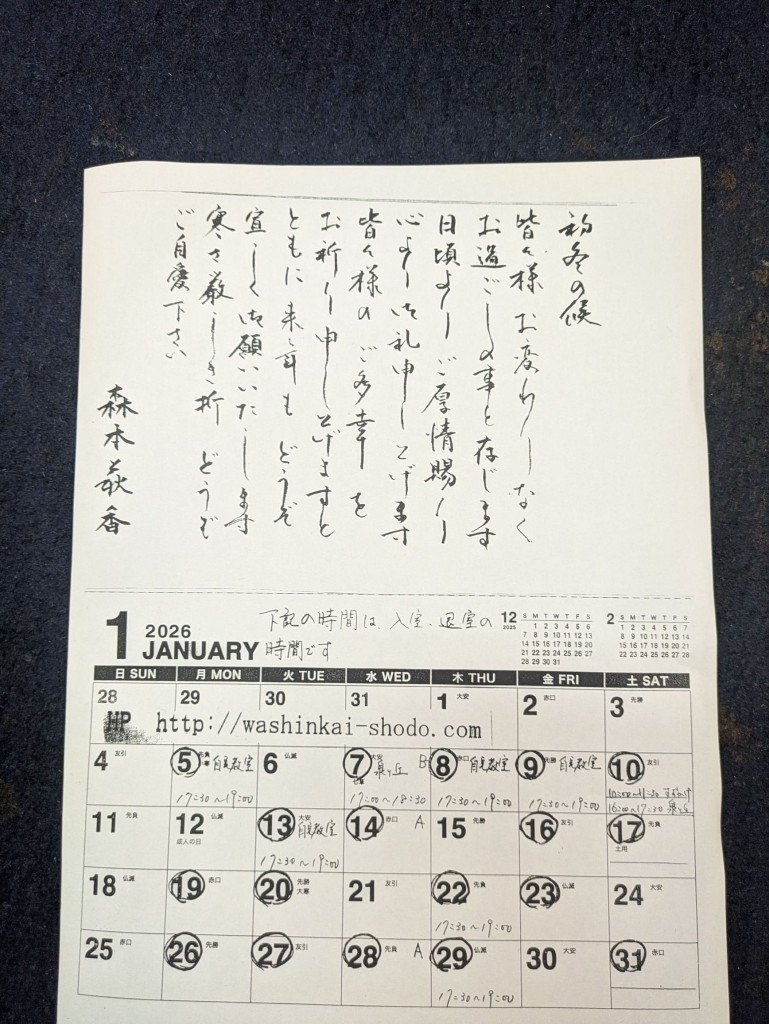 初冬の候
皆々様 お変わりなく
お過ごしの事と存じます
日頃より ご厚情賜り
心より御礼申し上げます
皆々様の ご多幸を
お祈り申し上げますと
ともに 来年も どうぞ
宜しく御願いいたします
寒さ厳しき折 どうぞ
ご自愛下さい
森本
香
1 2026 JANUARY
下記の時間は、入室、退室の
時間です
12 2025
S M T W T F S
1 2 3 4 5 6
7 8 9 10 11 12 13
14 15 16 17 18 19 20
21 22 23 24 25 26 27
28 29 30 31
2
S M T W T F S
1 2 3 4 5 6 7
8 9 10 11 12 13 14
15 16 17 18 19 20 21
22 23 24 25 26 27 28
日 SUN 月 MON 火 TUE 水 WED 木 THU 金 FRI 土 SAT
28 29 30 31 1 大安 2 赤口 3 先勝
HP http://washinkai-shodo.com
4 友引 5 先負 自宅教室 6 仏滅 7 大安 泉ヶ丘 B 8 赤口 自宅教室 9 先勝 自宅教室 10 友引
17:30〜19:00 17:00〜18:30 17:30〜19:00 17:30〜19:00 16:00〜17:30 泉ヶ丘
11 先負 12 仏滅 成人の日 13 大安 自宅教室 14 赤口 A 15 先勝 16 友引 17 先負 土用
17:30〜19:00
18 仏滅 19 赤口 20 先勝 大寒 21 友引 22 先負 23 仏滅 24 大安
17:30〜19:00
25 赤口 26 先勝 27 友引 28 先負 A 29 仏滅 30 大安 31 赤口
17:30〜19:00